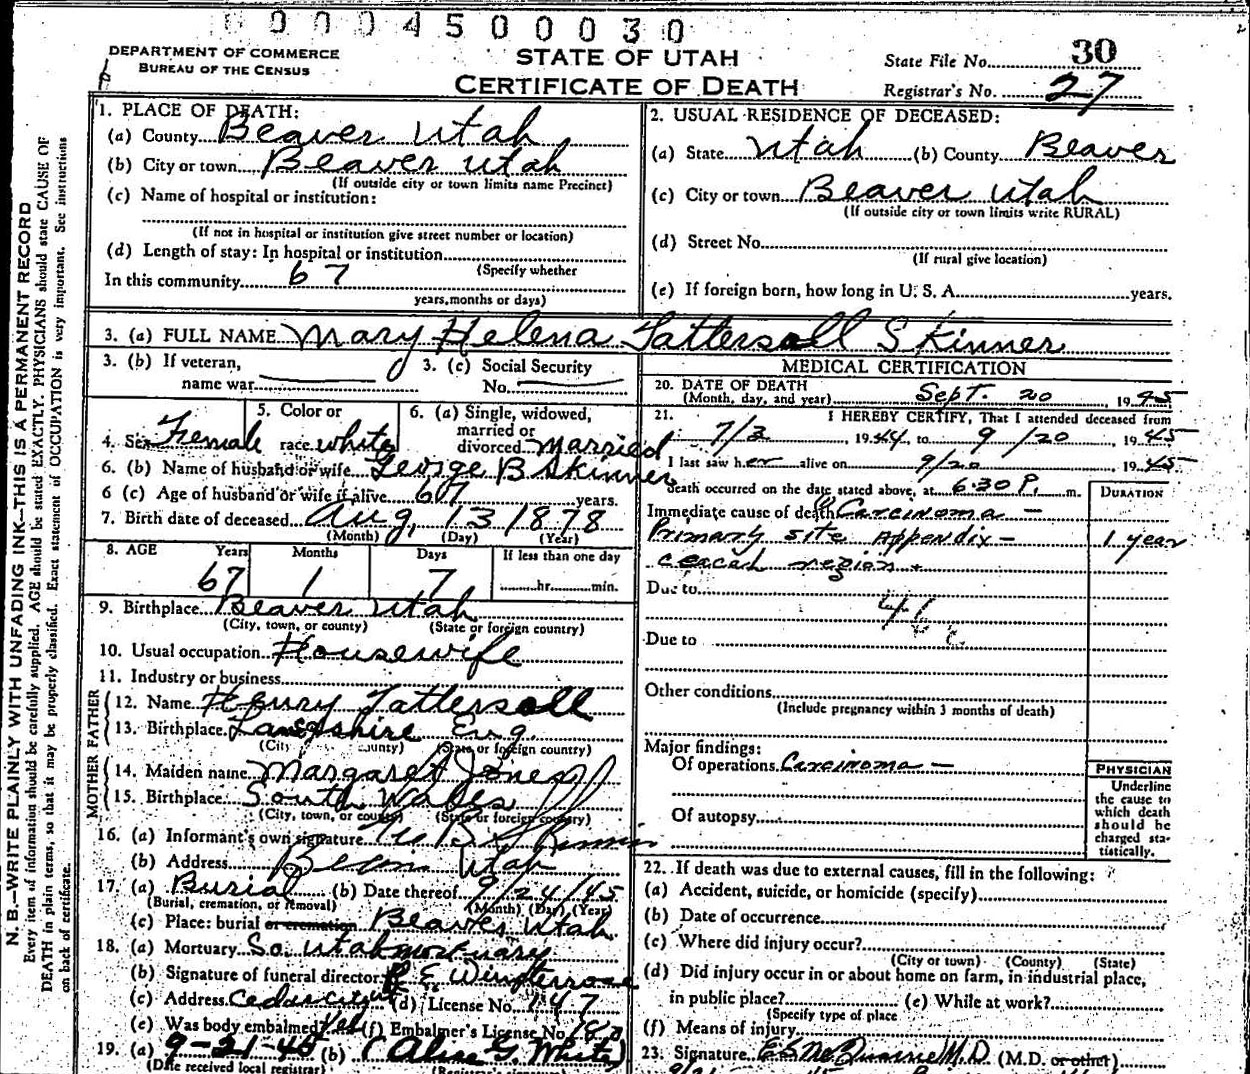 0004500030
DEPARTMENT OF COMMERCE
BUREAU OF THE CENSUS
STATE OF UTAH
CERTIFICATE OF DEATH
State File No. 30
Registrar's No. 27
N. B.—WRITE PLAINLY WITH UNFADING INK—THIS IS A PERMANENT RECORD
Every item of information should be carefully supplied. AGE should be stated EXACTLY. PHYSICIANS should state CAUSE OF
DEATH in plain terms, so that it may be properly classified. Exact statement of OCCUPATION is very important. See instructions
on back of certificate.
1. PLACE OF DEATH:
(a) County Beaver Utah
(b) City or town Beaver Utah
(If outside city or town limits name Precinct)
(c) Name of hospital or institution:
(If not in hospital or institution give street number or location)
(d) Length of stay: In hospital or institution
(Specify whether
In this community 67
years, months or days)
2. USUAL RESIDENCE OF DECEASED:
(a) State Utah (b) County Beaver
(c) City or town Beaver Utah
(If outside city or town limits write RURAL)
(d) Street No.
(If rural give location)
(e) If foreign born, how long in U. S. A. years.
3. (a) FULL NAME Mary Helena Tattersall Skinner
3. (b) If veteran,
name war
3. (c) Social Security
No.
4. Sex Female
5. Color or
race white
6. (a) Single, widowed,
married or
divorced married
6. (b) Name of husband or wife George B Skinner
6 (c) Age of husband or wife if alive 67 years.
7. Birth date of deceased Aug, 13 1878
(Month) (Day) (Year)
8. AGE Years Months Days If less than one day
67 1 7 hr. min.
9. Birthplace Beaver Utah
(City, town, or county) (State or foreign country)
10. Usual occupation Housewife
11. Industry or business
FATHER
12. Name Henry Tattersall
13. Birthplace Eng.
(City county) (State or foreign country)
MOTHER
14. Maiden name Margaret Jones
15. Birthplace South Wales
(City, town, or county) (State or foreign country)
16. (a) Informant's own signature Geo B Skinner
(b) Address Beaver Utah
17. (a) Burial (b) Date thereof 9/24/45
(Burial, cremation, or removal) (Month) (Day) (Year)
(c) Place: burial or cremation Beaver Utah
18. (a) Mortuary So. Utah mortuary
(b) Signature of funeral director
(c) Address Cedar city (d) License No. 147
(e) Was body embalmed Yes (f) Embalmer's License No.
19. (a) 9-21-45 (b) (Alice G. White)
(Date received local registrar) (Registrar's signature)
MEDICAL CERTIFICATION
20. DATE OF DEATH
(Month, day, and year) Sept. 20, 1945
21. I HEREBY CERTIFY, That I attended deceased from
7/3, 1944, to 9/20, 1945
I last saw her alive on 9/20 1945
death occurred on the date stated above, at 6:30 P. m.
DURATION
Immediate cause of death Carcinoma —
Primary site Appendix — 1 year
cecal region.
Due to
Due to
Other conditions
(Include pregnancy within 3 months of death)
Major findings:
Of operations Carcinoma —
Of autopsy
PHYSICIAN
Underline
the cause to
which death
should be
charged sta-
tistically.
22. If death was due to external causes, fill in the following:
(a) Accident, suicide, or homicide (specify)
(b) Date of occurrence
(c) Where did injury occur?
(City or town) (County) (State)
(d) Did injury occur in or about home on farm, in industrial place,
in public place? (e) While at work?
(Specify type of place
(f) Means of injury
23. Signature M.D. (M.D. or other)